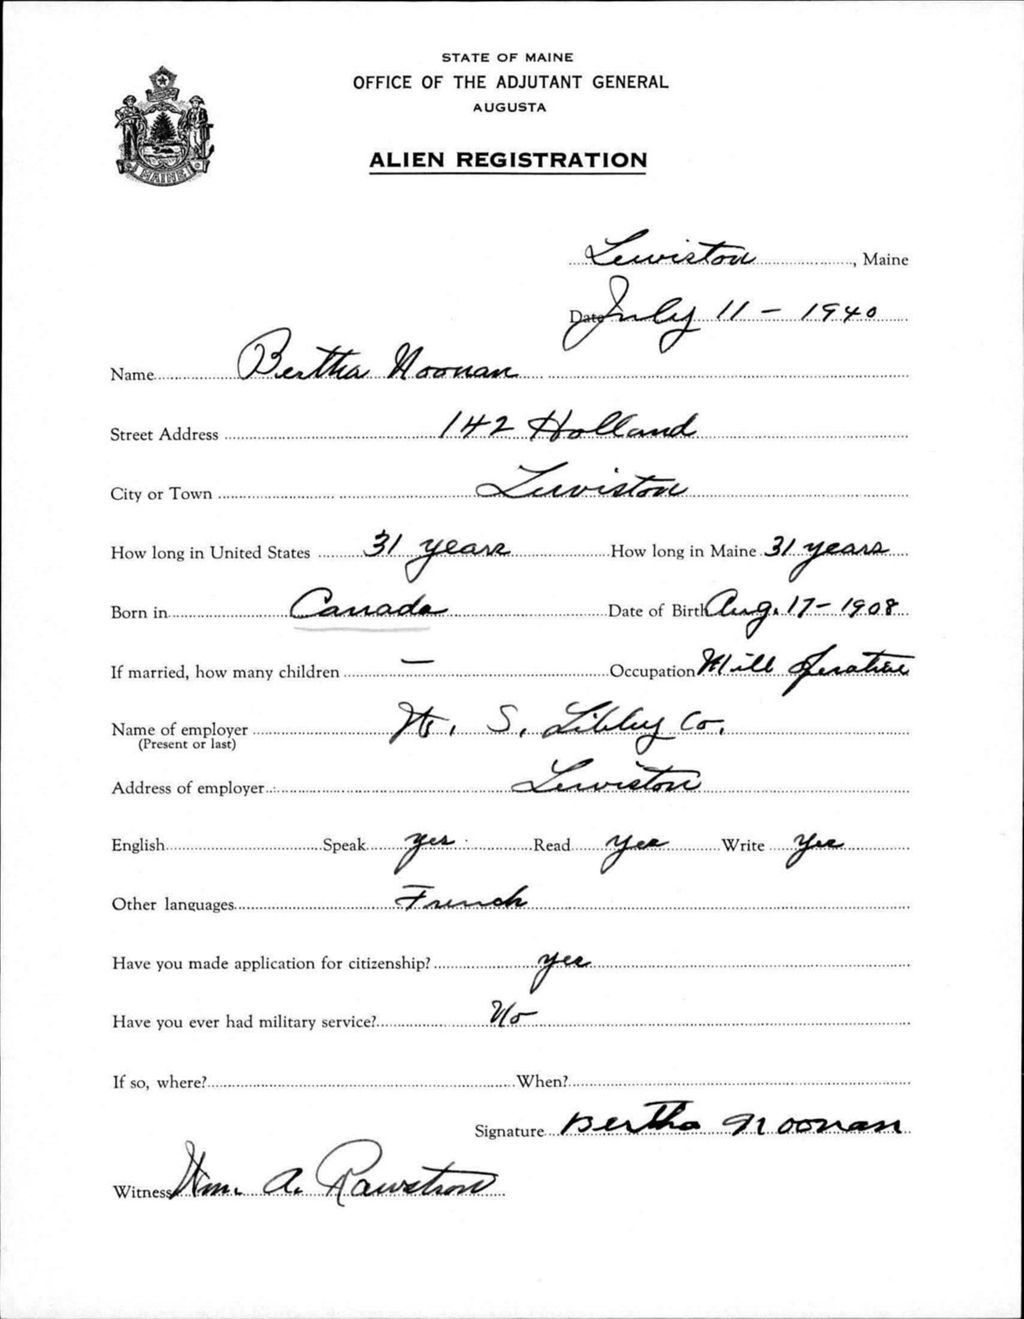 STATE OF MAINE
OFFICE OF THE ADJUTANT GENERAL
AUGUSTA
ALIEN REGISTRATION
MAINE
Lewiston, Maine
Date July 11 - 1940
Name Bertha Noonan
Street Address 142 Holland
City or Town Lewiston
How long in United States 31 years How long in Maine 31 years
Born in Canada Date of Birth Aug. 17 - 1908
If married, how many children — Occupation Mill Operative
Name of employer W. S. Libbey Co.
(Present or last)
Address of employer Lewiston
English Speak yes Read yes Write yes
Other languages French
Have you made application for citizenship? yes
Have you ever had military service? No
If so, where? When?
Signature Bertha Noonan
Witness Wm. A. Rawstron